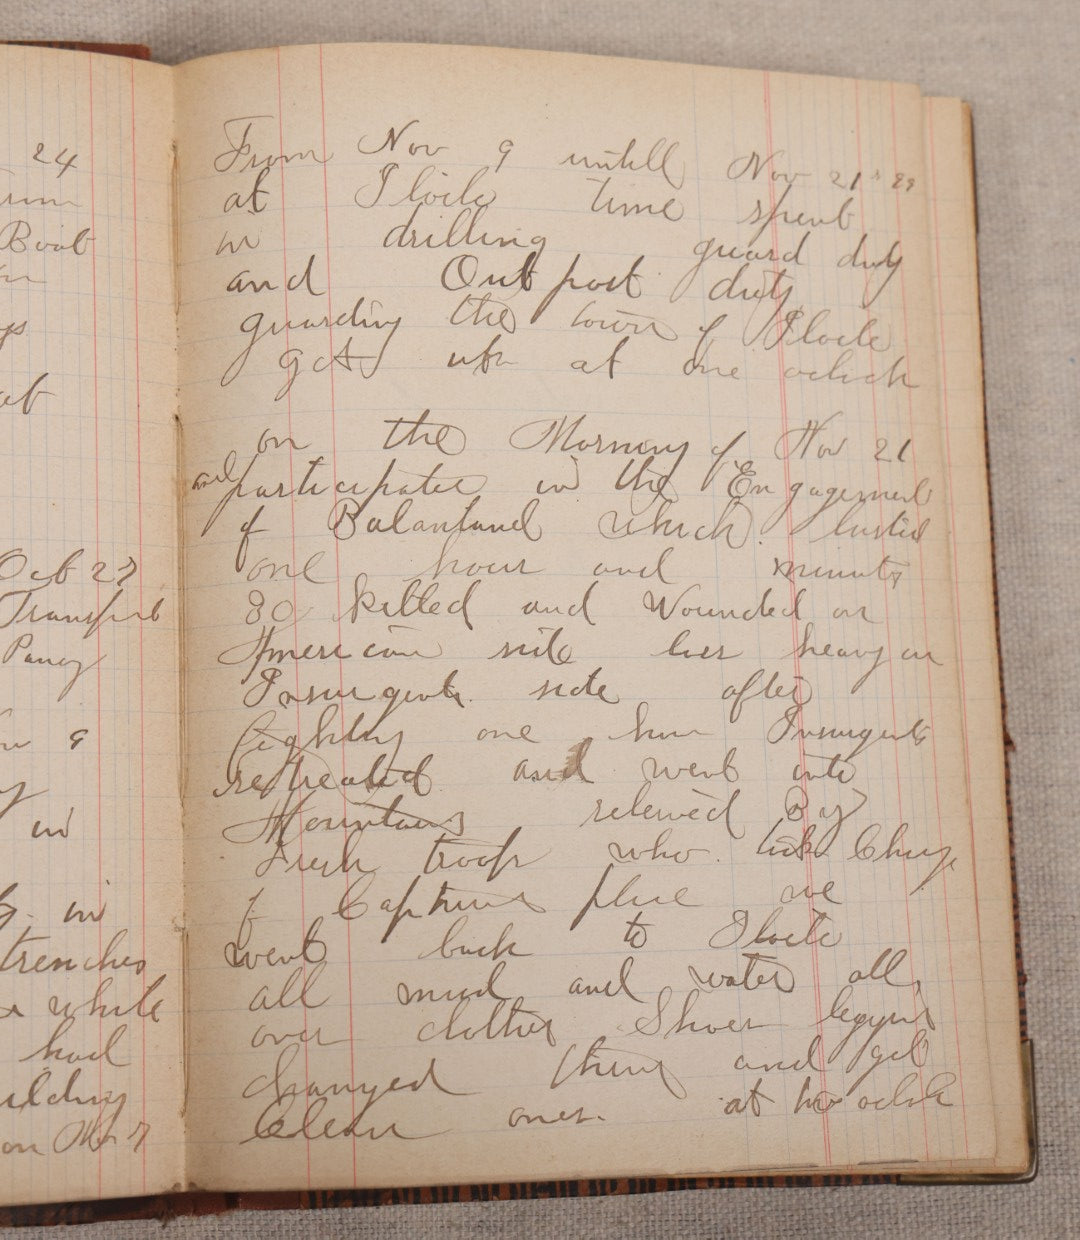 24
Boat
at
Oct 27
Transport
Panay
9
in
in
trenches
while
had
building
on Nov 7
From Nov 9 untill Nov 21st 99
at Iloilo time spent
in drilling guard duty
and Out post duty
guarding the town of Iloilo
got up at one oclock
on the Morning of Nov 21
and participated in the Engagement
of Balantand which lasted
one hour and minuts
80 killed and Wounded on
American side loss heavy on
Insurgents side after
fighting one hour Insurgents
retreated and went into
Mountains releived By
Fresh troops who took Charge
of Capturd place we
went back to Iloilo
all mud and water all
over clothes Shoes leggins
changed them and got
Clean ones. at two oclock